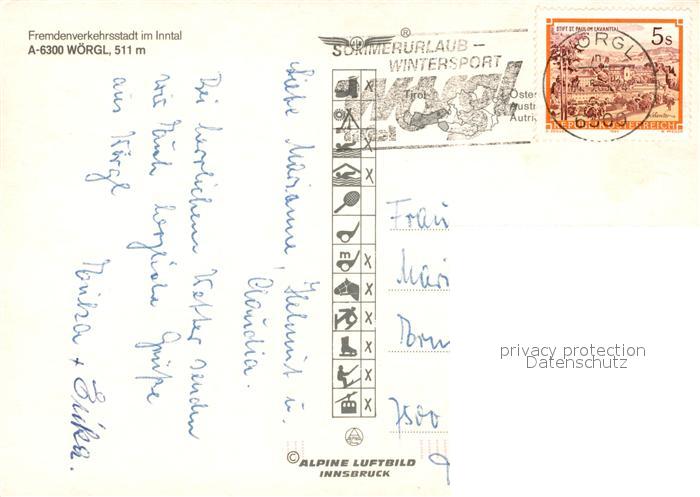 Fremdenverkehrsstadt im Inntal
A-6300 WÖRGL, 511 m
SOMMERURLAUB –
WINTERSPORT
Tirol
Öster
Austri
Autri
STIFT ST. PAUL IM LAVANTTAL
5 S
REPUBLIK ÖSTERREICH
WÖRGL
6300
Liebe Marianne, Helmut u.
Claudia.
Bei herrlichem Wetter senden
wir Euch herzliche Grüße
aus Wörgl
+ Erika.
Frau
Mari
7500
privacy protection
Datenschutz
© ALPINE LUFTBILD
INNSBRUCK